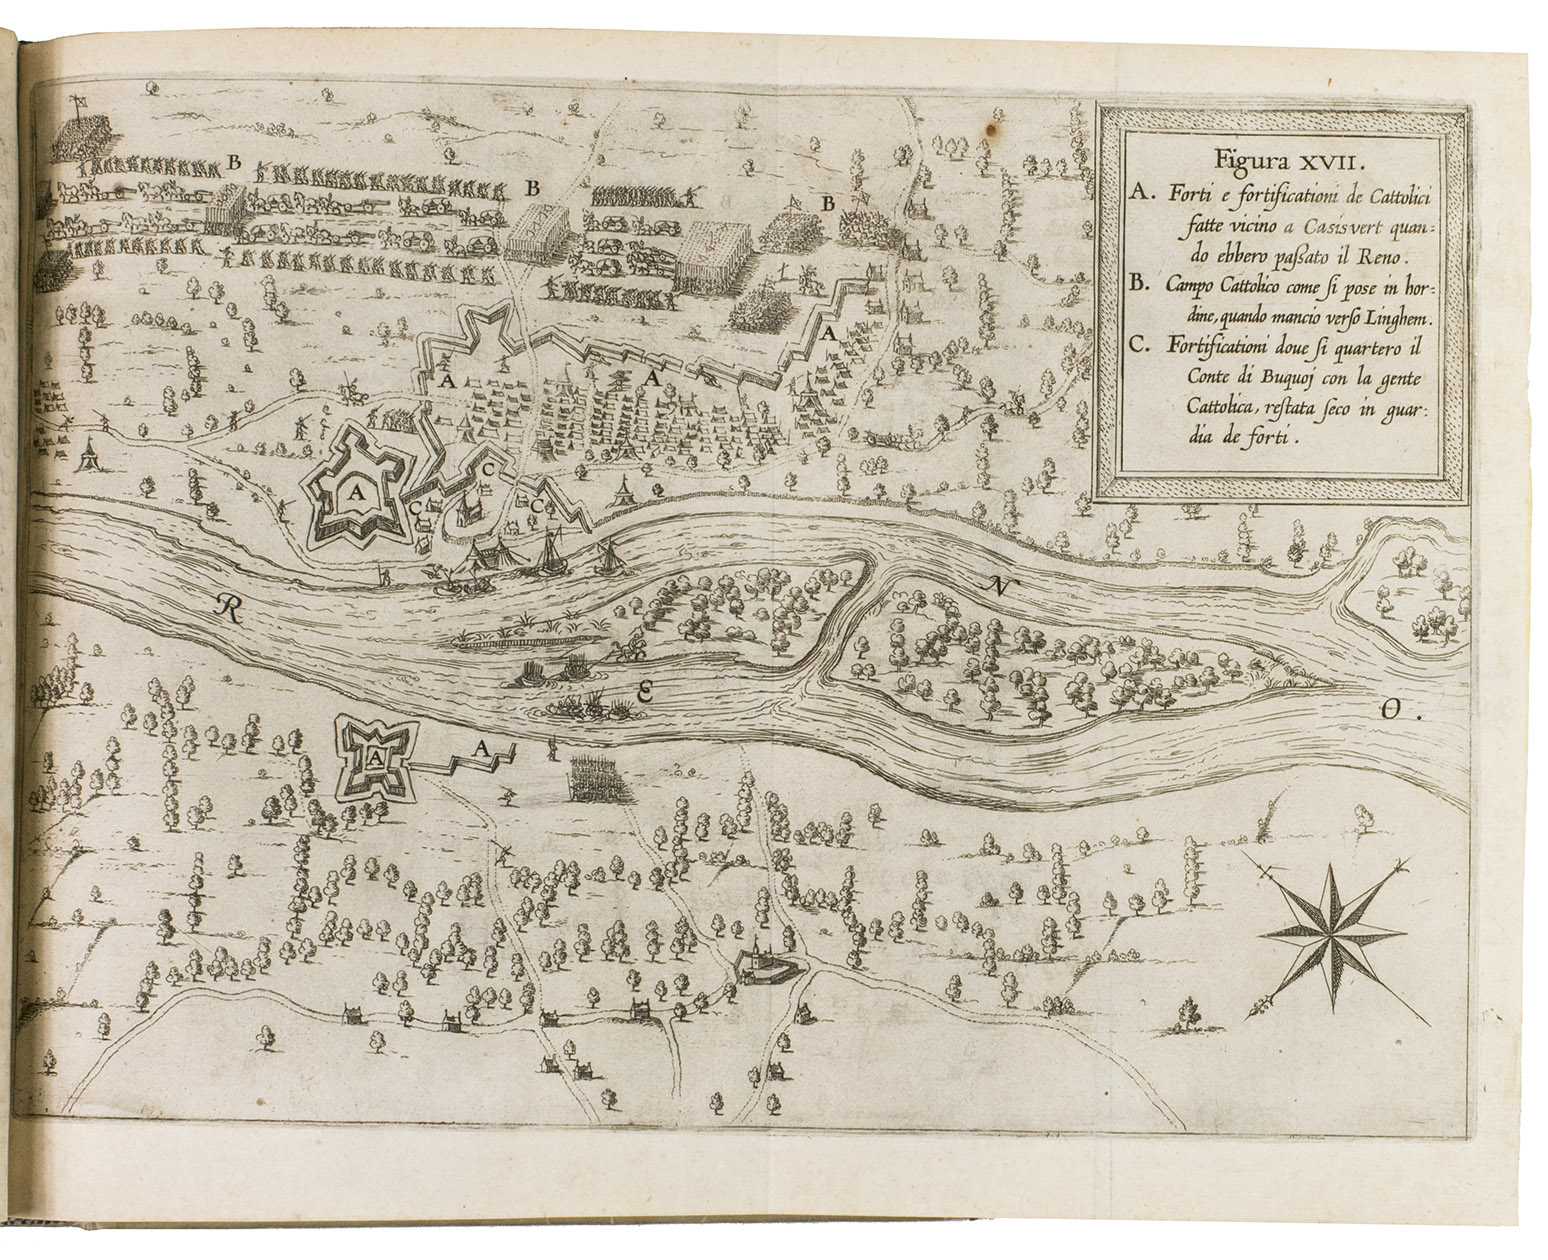 Figura XVII.
A. Forti e fortificationi de Cattolici
fatte vicino a Casisvert quan=
do ebbero paſsato il Reno.
B. Campo Cattolico come ſi pose in hor=
dine, quando mancio verſo Linghem.
C. Fortificationi doue ſi quartero il
Conte di Buquoj con la gente
Cattolica, reſtata ſeco in guar=
dia de forti.
B
B
B
A
A
A
C
A
C
C
R
N
E
O.
A
A